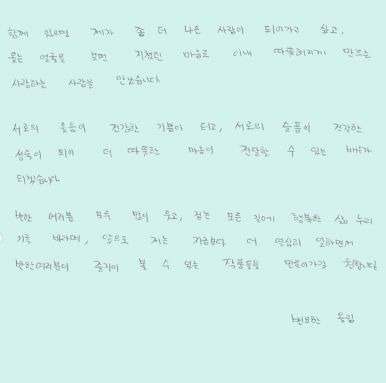 함께 있으면 제가 좀 더 나은 사람이 되어가고 싶고,
웃는 얼굴을 보면 지쳤던 마음도 이내 따뜻해지게 만드는
사랑하는 사람을 만났습니다.
서로의 웃음이 건강한 기쁨이 되고, 서로의 슬픔이 건강한
성숙이 되어 더 따뜻한 마음이 전달할 수 있는 배우가
되겠습니다.
변한 여러분 모두 많이 웃고, 걷는 모든 길에 행복한 삶 누리
기를 바라며, 앞으로 저는 지금보다 더 열심히 일하면서
변한여러분이 즐거이 볼 수 있는 작품들을 만들어가길 원합니다.
변요한 올림